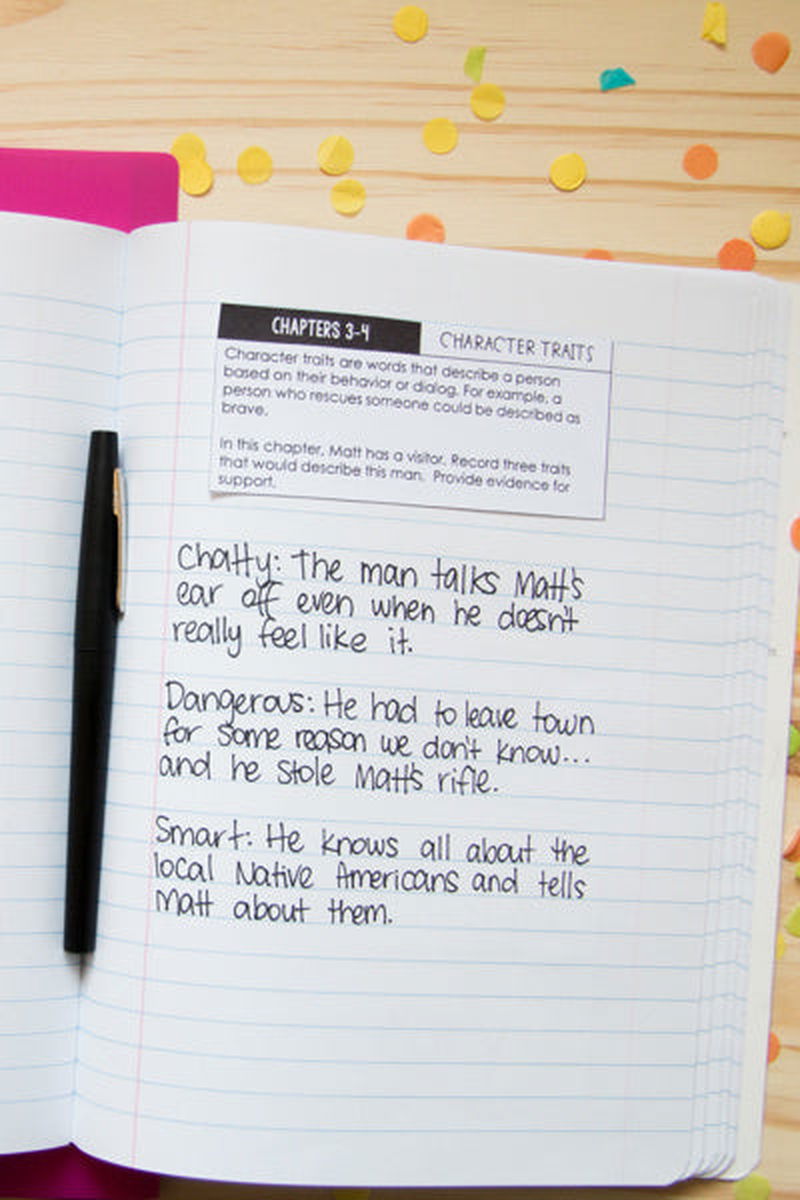 CHAPTERS 3-4
CHARACTER TRAITS
Character traits are words that describe a person
based on their behavior or dialog. For example, a
person who rescues someone could be described as
brave.
In this chapter, Matt has a visitor. Record three traits
that would describe this man. Provide evidence for
support.
Chatty: The man talks Matt's
ear off even when he doesn't
really feel like it.
Dangerous: He had to leave town
for some reason we don't know...
and he stole Matt's rifle.
Smart: He knows all about the
local Native Americans and tells
Matt about them.